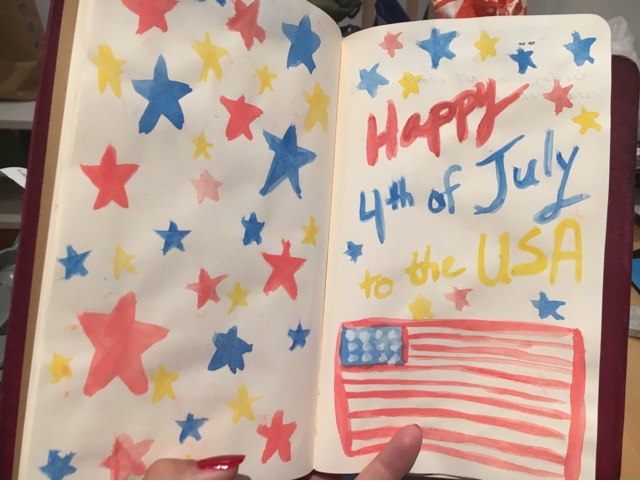 Happy
4th of July
to the USA